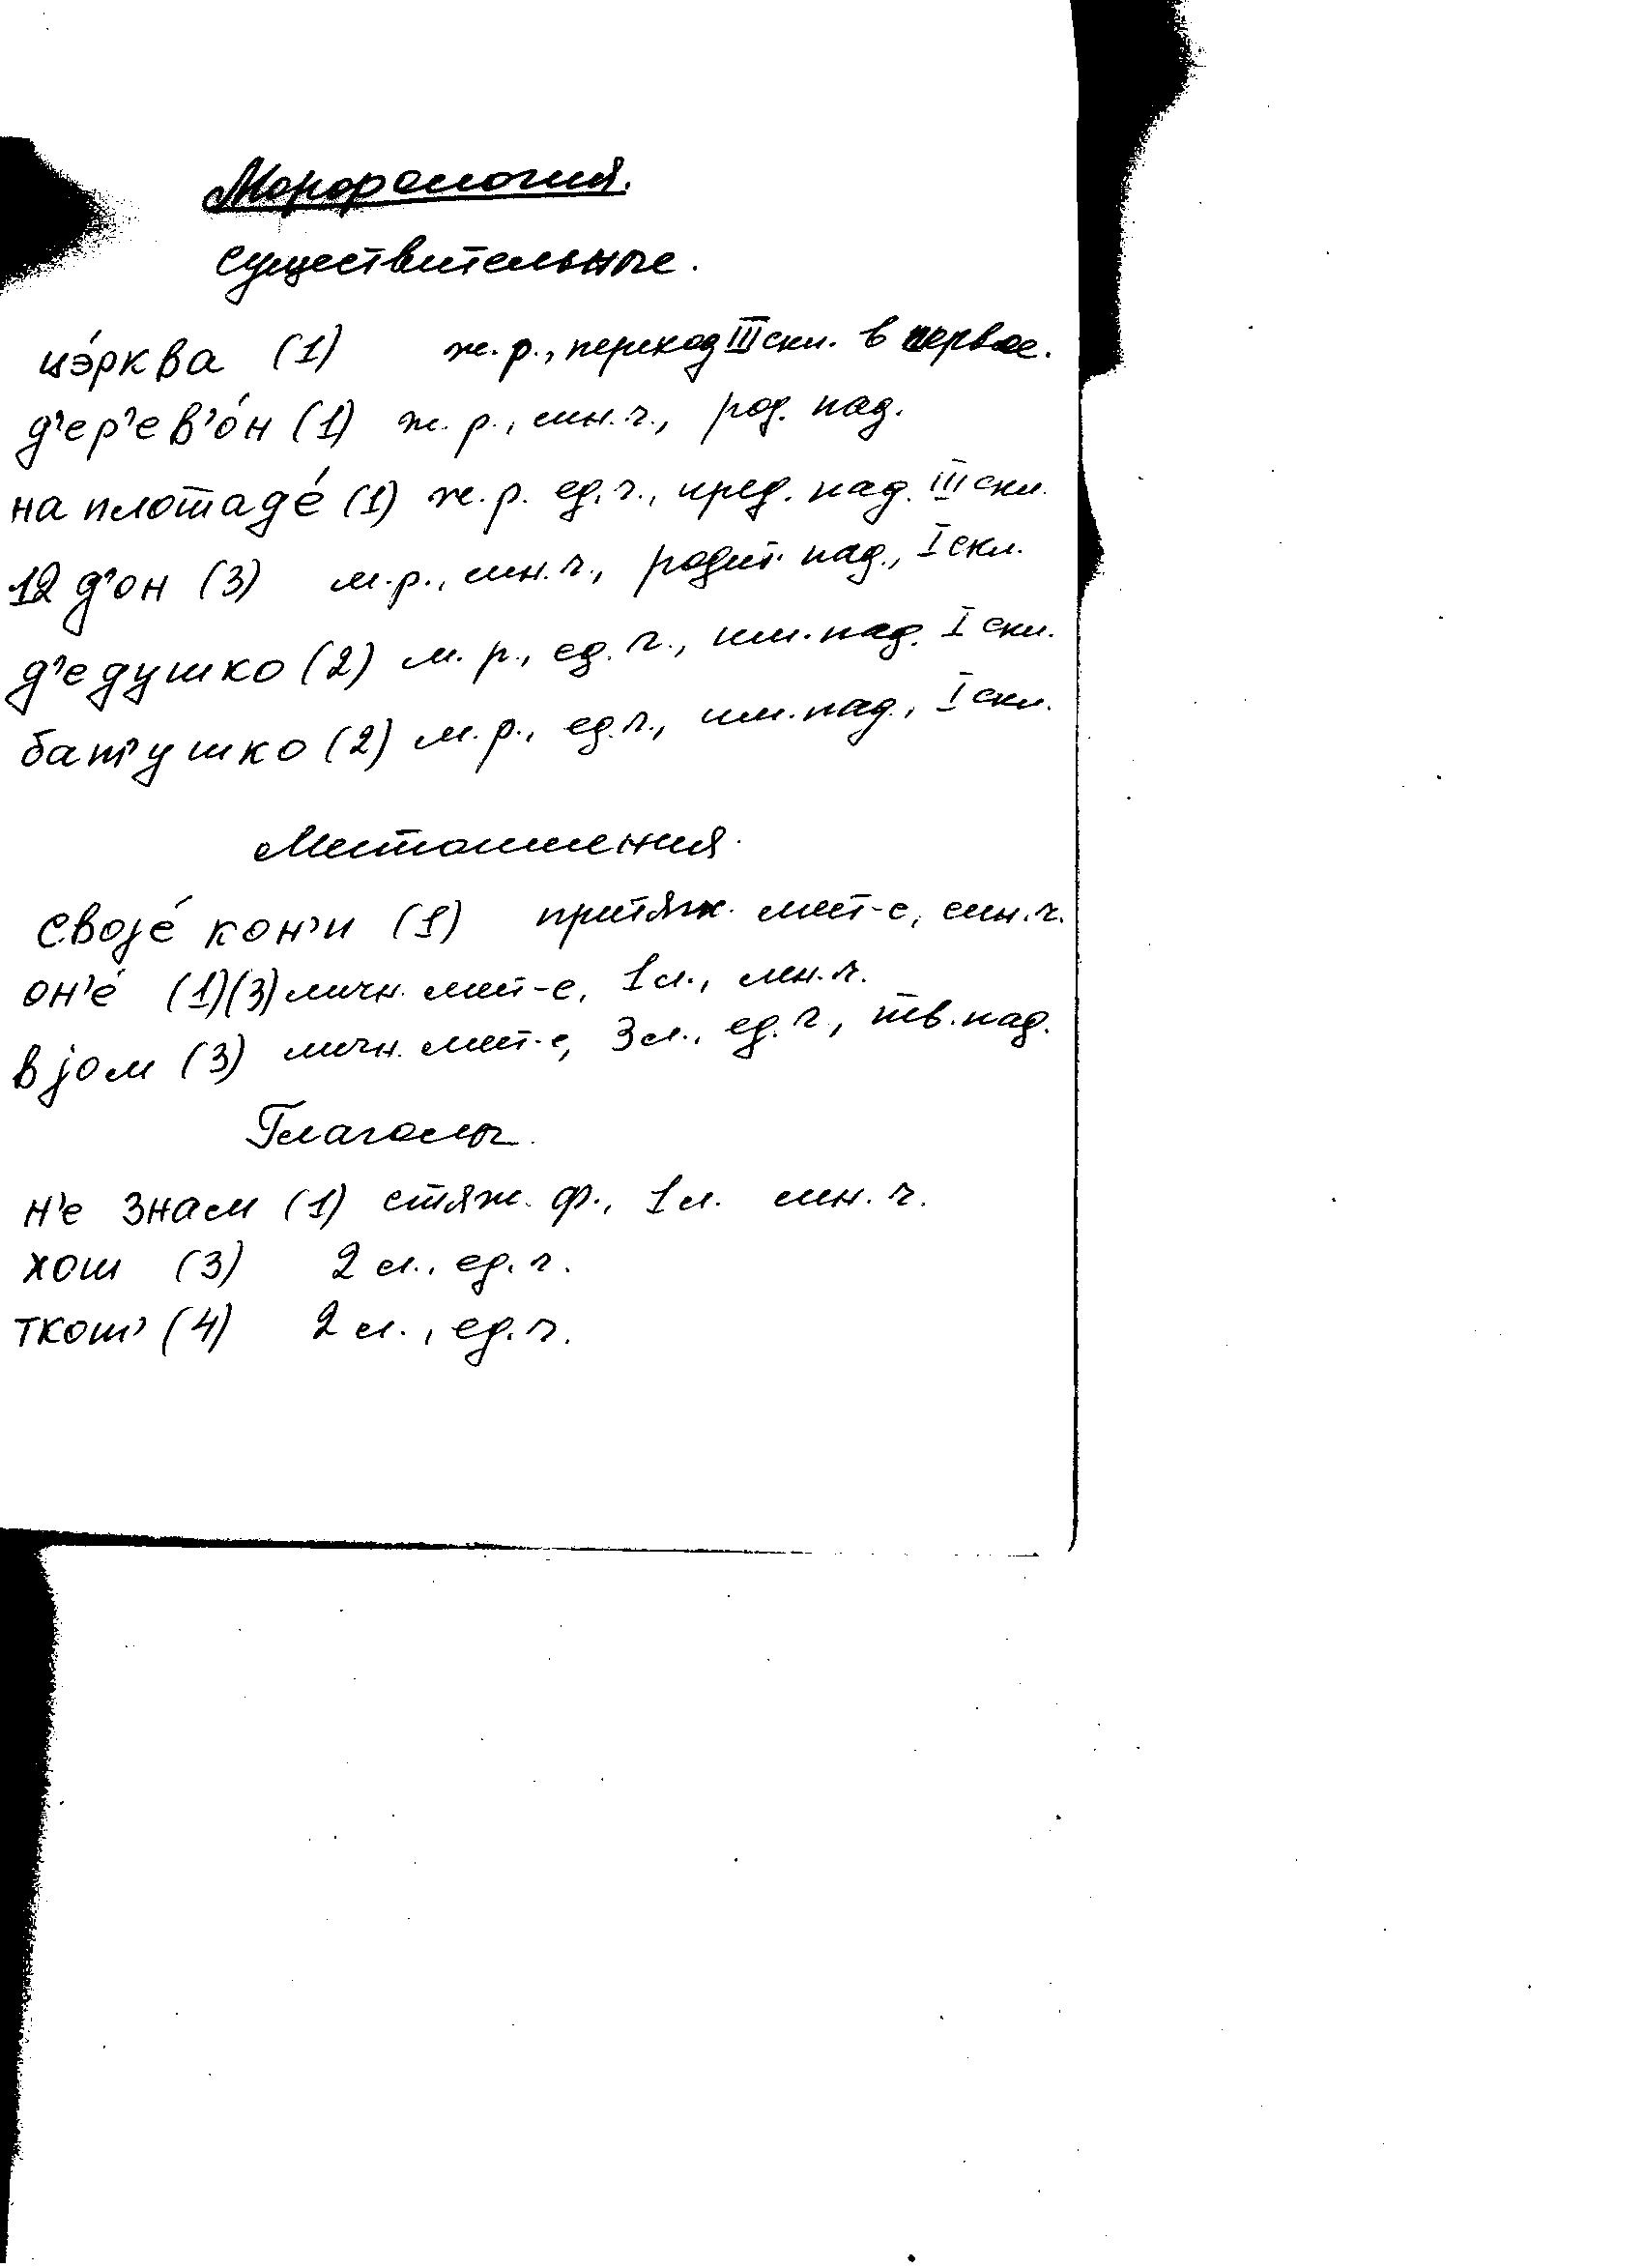 Морфология.
Существительные.
цэ́рква (1) ж.р., переход III скл. в первое.
д'ер'ев'о́н (1) ж.р., мн.ч., род. пад.
на плошаде́ (1) ж.р. ед.ч., пред. пад. III скл.
12 д'он (3) м.р., мн.ч., родит. пад., I скл.
д'едушко (2) м.р., ед.ч., им.пад. I скл.
бат'ушко (2) м.р., ед.ч., им.пад., I скл.
Местоимения.
својé кон'и (1) притяж. мест-е, мн.ч.
он'é (1)(3) личн. мест-е, 1 л., мн.ч.
в јом (3) личн. мест-е, 3 л., ед.ч, тв.пад.
Глаголы.
н'е знам (1) стяж. ф., 1 л. мн.ч.
хош (3) 2 л., ед.ч.
ткош' (4) 2 л., ед.ч.